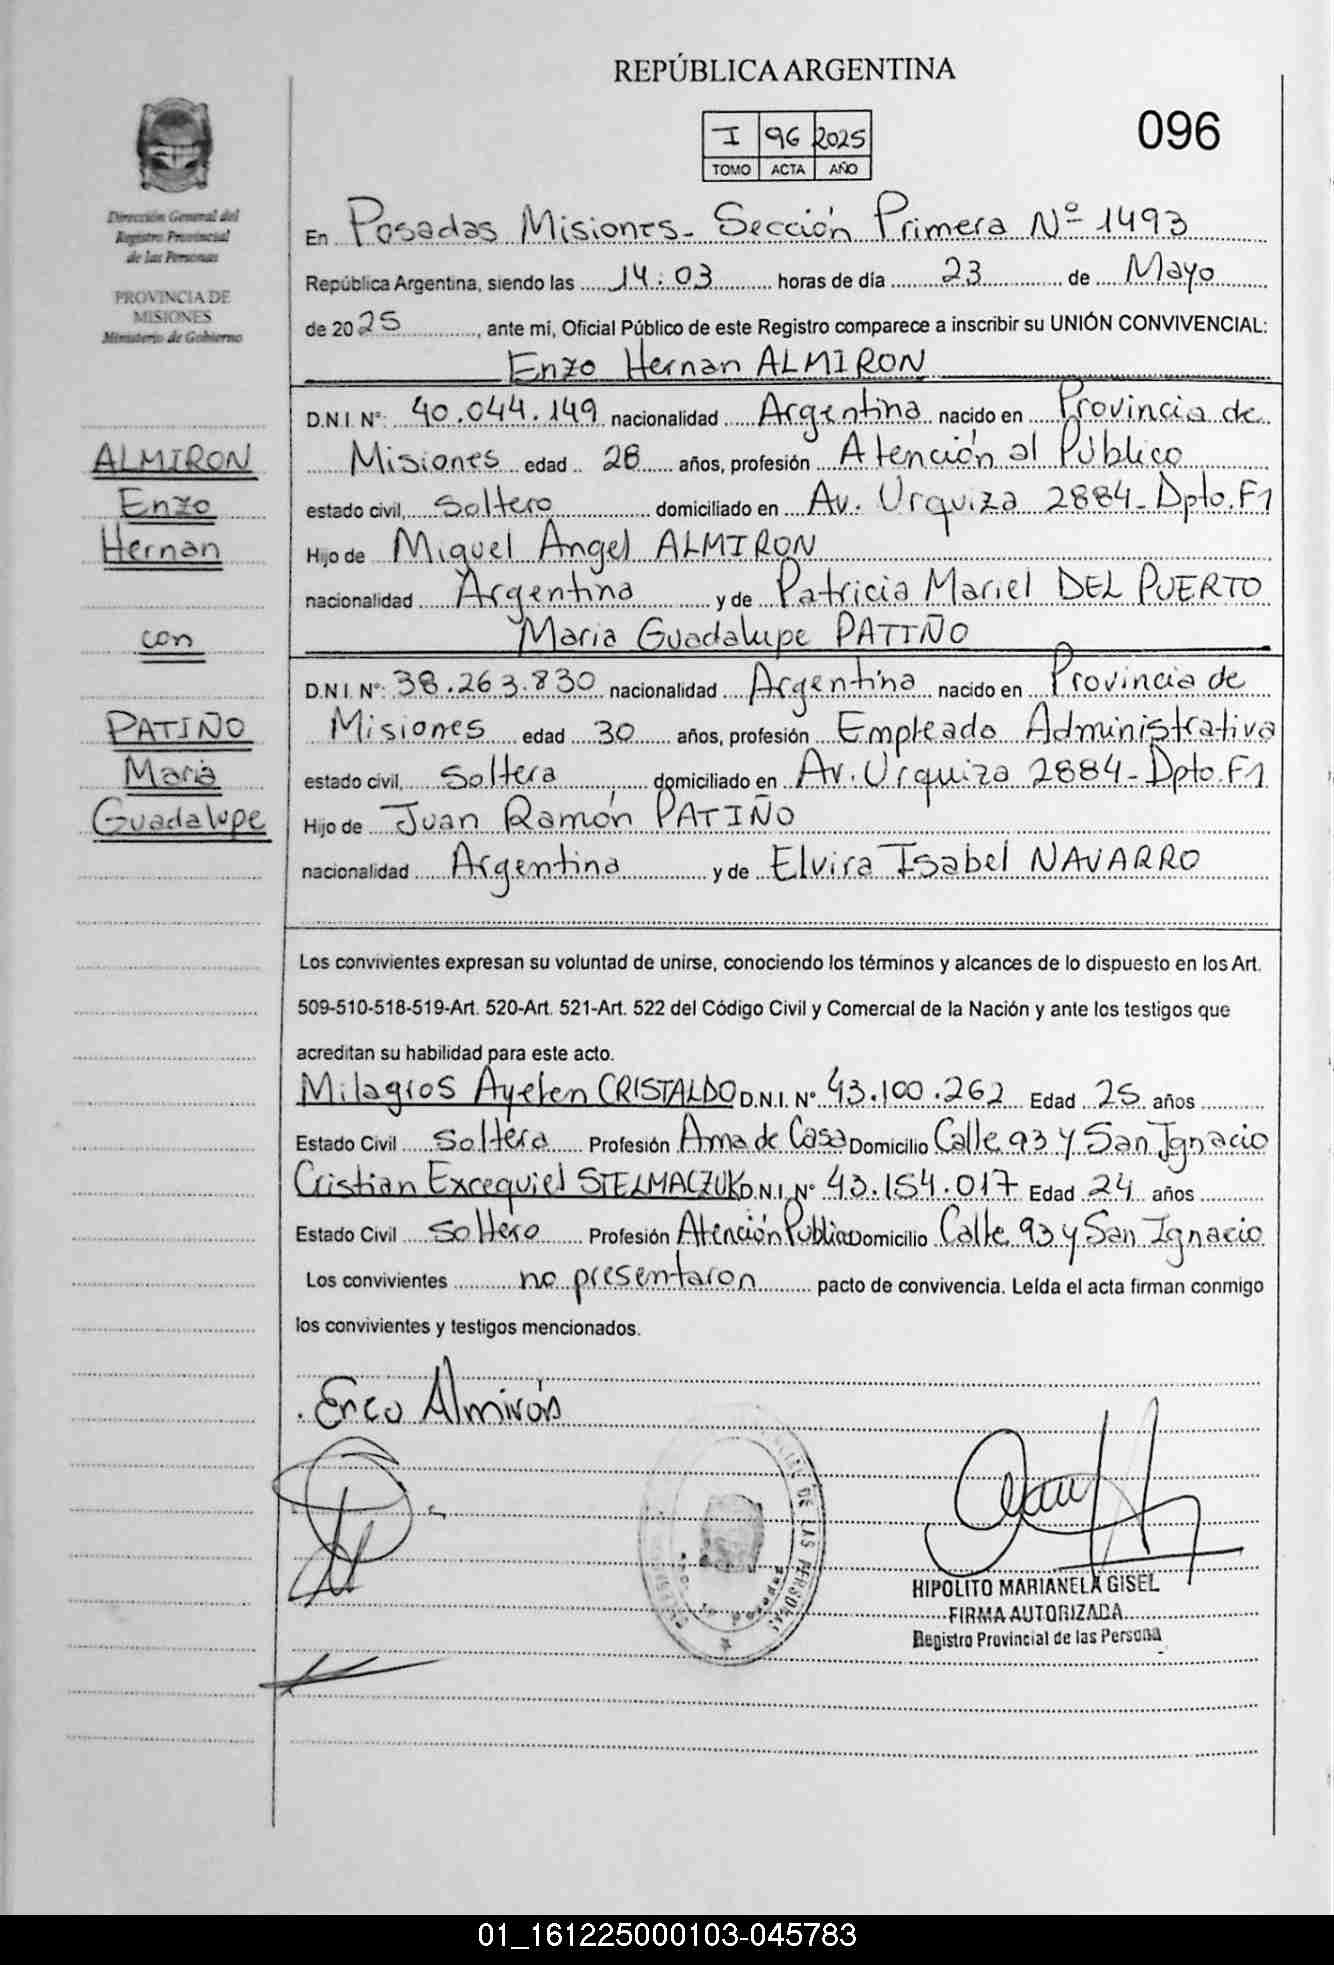 REPÚBLICA ARGENTINA
096
I 96 2025
TOMO ACTA AÑO
Dirección General del
Registro Provincial
de las Personas
PROVINCIA DE
MISIONES
Ministerio de Gobierno
En Posadas Misiones- Sección Primera Nº 1493
República Argentina, siendo las 14:03 horas de día 23 de Mayo
de 2025, ante mi, Oficial Público de este Registro comparece a inscribir su UNIÓN CONVIVENCIAL:
Enzo Hernan ALMIRON
D.N.I. N°: 40.044.149 nacionalidad Argentina nacido en Provincia de
Misiones edad 28 años, profesión Atención al Público
estado civil, Soltero domiciliado en Av. Urquiza 2884- Dpto. F1
Hijo de Miguel Angel ALMIRON
nacionalidad Argentina y de Patricia Mariel DEL PUERTO
Maria Guadalupe PATIÑO
D.N.I. N°: 38.263.830 nacionalidad Argentina nacido en Provincia de
Misiones edad 30 años, profesión Empleado Administrativa
estado civil, Soltera domiciliado en Av. Urquiza 2884- Dpto. F1
Hijo de Juan Ramón PATIÑO
nacionalidad Argentina y de Elvira Isabel NAVARRO
ALMIRON
Enzo
Hernan
con
PATIÑO
Maria
Guadalupe
Los convivientes expresan su voluntad de unirse, conociendo los términos y alcances de lo dispuesto en los Art.
509-510-518-519-Art. 520-Art. 521-Art. 522 del Código Civil y Comercial de la Nación y ante los testigos que
acreditan su habilidad para este acto.
Milagros Ayelen CRISTALDO D.N.I. N° 43.100.262 Edad 25 años
Estado Civil Soltera Profesión Ama de Casa Domicilio Calle 93 y San Ignacio
Cristian Exequiel STELMACZUK D.N.I. N° 43.154.017 Edad 24 años
Estado Civil Soltero Profesión Atención Público Domicilio Calle 93 y San Ignacio
Los convivientes no presentaron pacto de convivencia. Leída el acta firman conmigo
los convivientes y testigos mencionados.
Enzo Almirón
DE LAS PERSONAS
HIPOLITO MARIANELA GISEL
FIRMA AUTORIZADA
Registro Provincial de las Persona
01_161225000103-045783